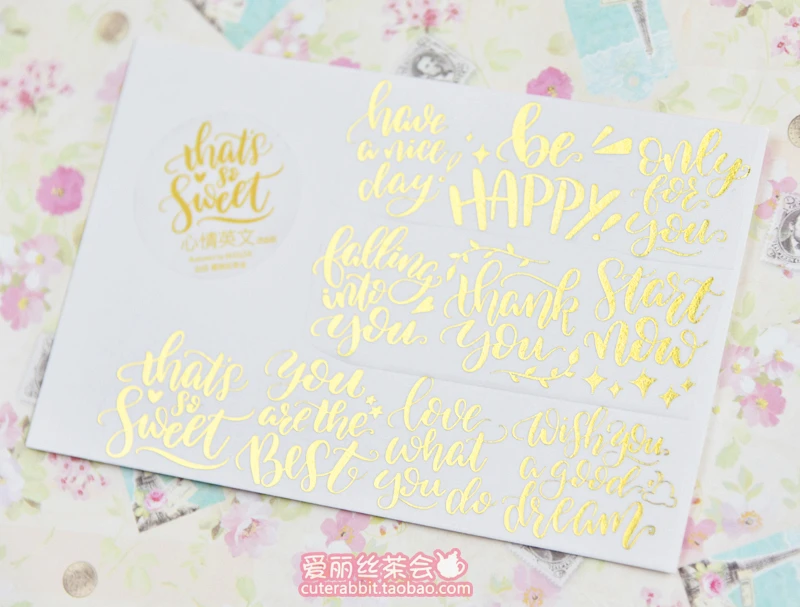 that's
so
Sweet
心情英文
have
a nice
day!
be
HAPPY!
only
for
you
falling
into
you
thank
you
Start
now
that's
so
Sweet
You
are the
BEST
love
what
you do
Wish you
a good
dream
爱丽丝茶会
cuterabbit.taobao.com